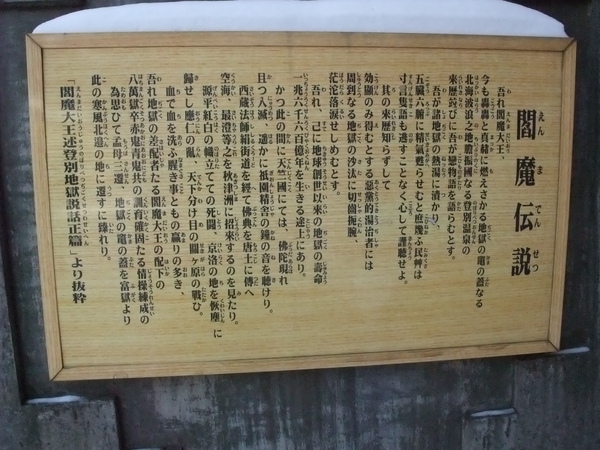 閻魔伝説
吾れ閻魔大王、
今も轟轟と真緒に燃えさかる地獄の竈の蓋なる
北海波浪之地膽振國なる登別温泉の
来歴並びに吾が見物譚を語らむとす。
吾が諸諸の熱湯に漬かり、
五臓六腑に精氣甦らせむと庶幾ふ民艸は
寸言隻語も洩すことなく心して謹聴せよ。
其の来歴知らずして
効顕のみ得むとする惡黨的湯治者には
周到なる地獄の沙汰に切齒扼腕、
茫沱落涙せしめむぞ。
吾れ、己に地球創世以来の地獄の壽命
一兆六千六百億年を生きる途上にあり。
かつ此の間に天竺國にては、佛陀現れ
且つ入滅、遥かに祇園精舎の鐘の音を聴けり。
西蔵法師絹街道を經て佛典を唐土に傳へ
空海、最澄之を秋津洲に招来するのを見たり。
源平紅白の幟立てての死闘、京洛の地を灰塵に
歸せし應仁の亂、天下分け目の關ヶ原の戰ひ。
血で血を洗ふ腥き事ともの羸りの多き、
吾れ地獄の差配者たる閻魔大王の配下の
八萬獄卒赤鬼青鬼共の訓育確固たる情操練成の
為思ひて孟母三遷、地獄の竈の蓋を富獄より
此の寒風北邊の地に還すに臻れり。
「閻魔大王述登別地獄説話正篇」より抜粋